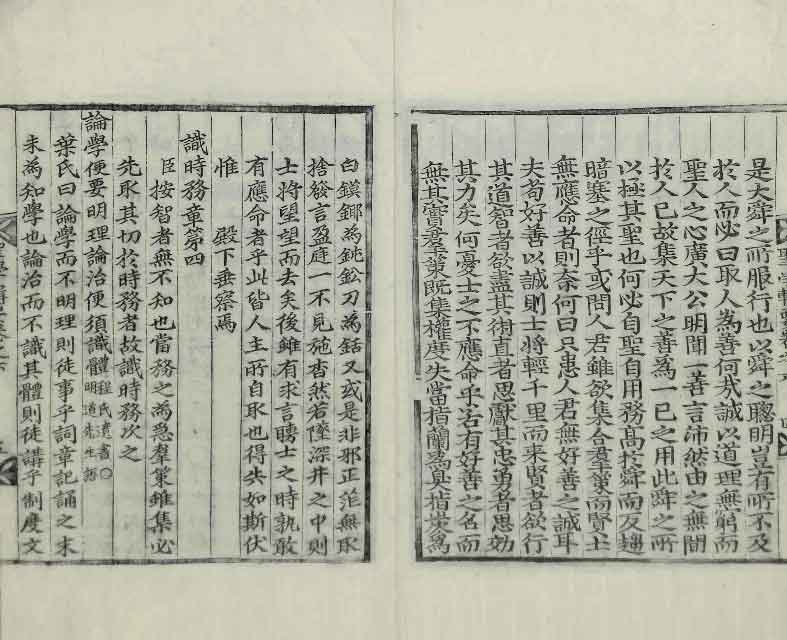 是大舜之所服行也以舜之聰明豈有所不及
於人而必曰取人爲善何哉誠以道理無窮而
聖人之心廣大公明聞一善言沛然由之無間
於人已故集天下之善爲一已之用此舜之所
以極其聖也何必自聖自用務高於舜而反趨
暗塞之徑乎或問人君雖欲集合羣策而賢士
無應命者則柰何曰只患人君無好善之誠耳
夫苟好善以誠則士將輕千里而來賢者欲行
其道智者欲盡其術直者思獻其忠勇者思効
其力矣何憂士之不應命乎若有好善之名而
無其實羣策旣集權度失當指蘭爲臭指爲
白鏌鎁爲銚鈆刀爲銛又或是非邪正茫無取
捨發言盈庭一不見施杳然若墮深井之中則
士將望望而去矣後雖有求言聘士之時孰敢
有應命者乎此皆人主所自取也得失如斯伏
惟 殿下垂察焉
識時務章第四
臣按智者無不知也當務之爲急羣策雖集必
先取其切於時務者故識時務次之
論學便要明理論治便須識體程氏遺書○明道先生語
葉氏曰論學而不明理則徒事乎詞章記誦之末
未爲知學也論治而不識其體則徒講乎制度文